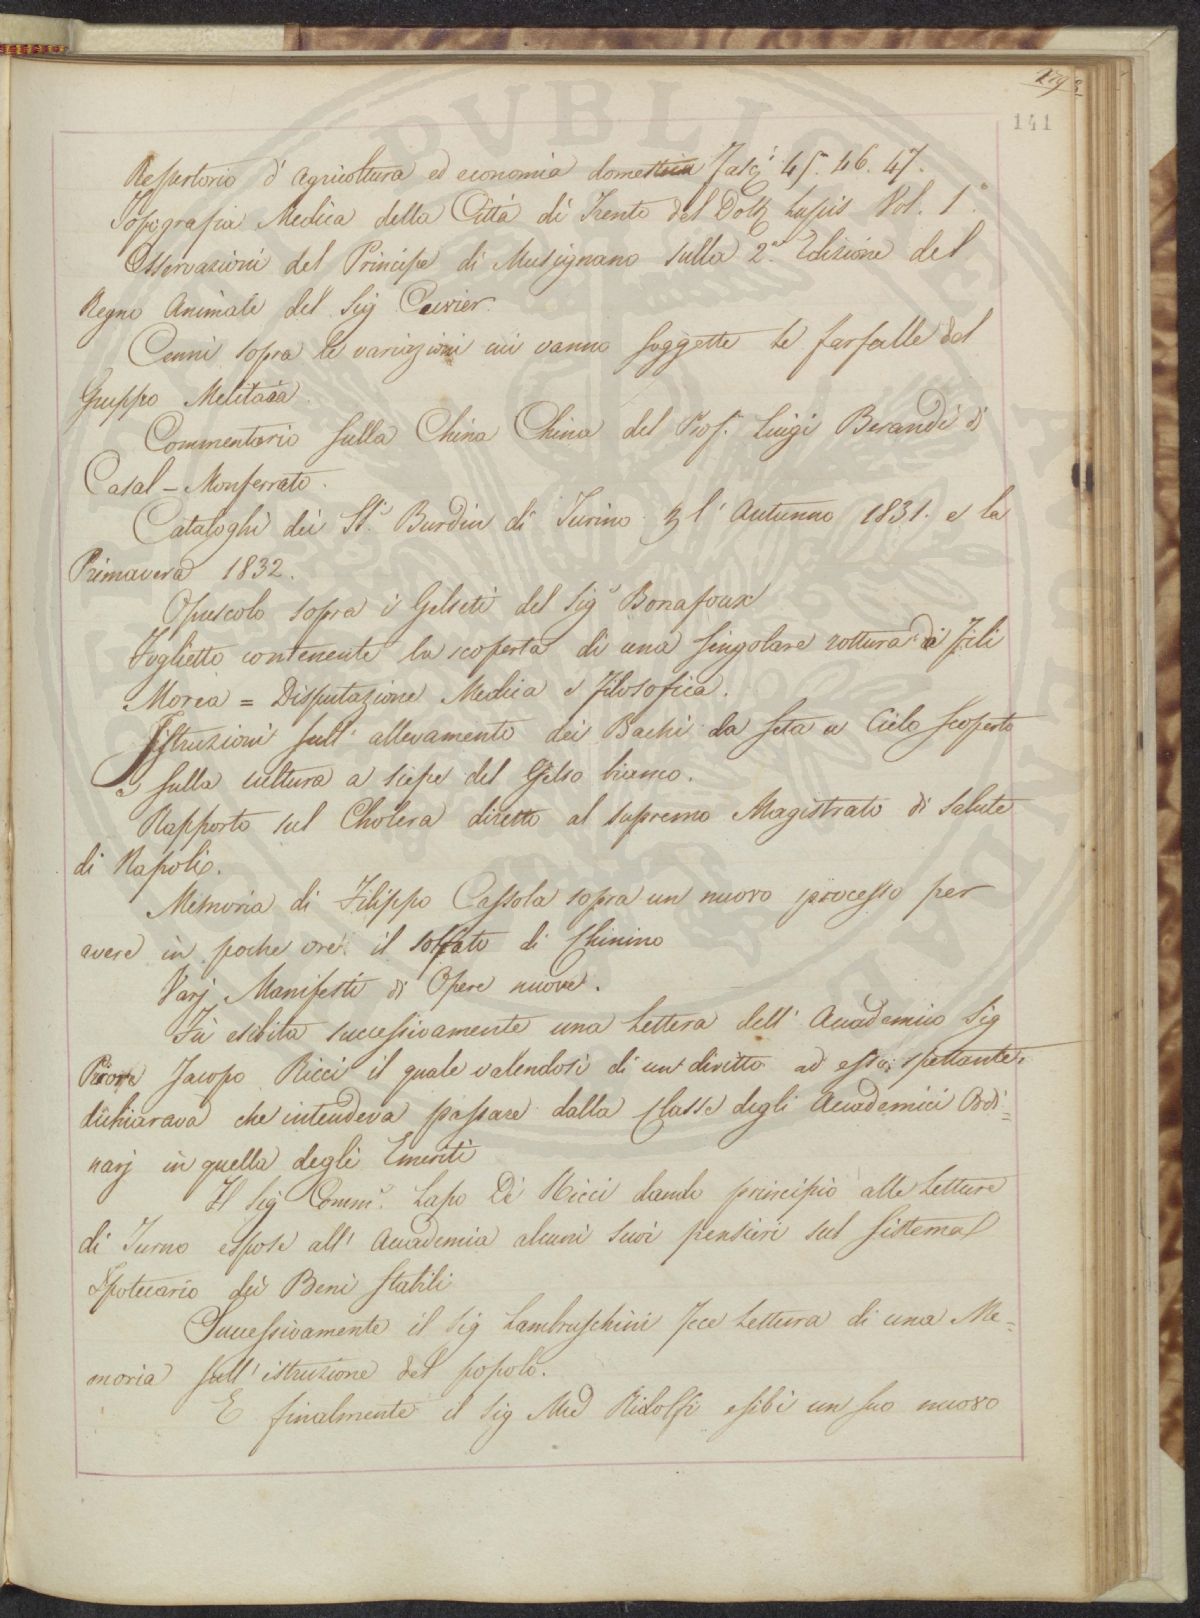 141
Repertorio d'Agricoltura ed economia domestica Fasci 45. 46. 47.
Topografia Medica della Città di Trento del Dott Lupis Vol. 1°.
Osservazioni del Principe di Musignano sulla 2.a Edizione del
Regno Animale del Sig Cuvier.
Cenni sopra le variazioni cui vanno soggette le farfalle del
Gruppo Melitaea.
Commentario sulla China China del Prof. Luigi Berandi di
Casal-Monferrato.
Cataloghi dei Sti. Burdin di Torino l'Autunno 1831. e la
Primavera 1832.
Opuscolo sopra i Gelseti del Sig. Bonafoux
Foglietto contenente la scoperta di una singolare rottura di Fili
Morea = Disputazione Medica e Filosofica.
Istruzioni sull'allevamento dei Bachi da Seta a Cielo Scoperto
e sulla cultura a siepe del Gelso bianco.
Rapporto sul Cholera diretto al supremo Magistrato di Salute
di Napoli.
Memoria di Filippo Cassola sopra un nuovo processo per
avere in poche ore il solfato di Chinino
Varj Manifesti di Opere nuove.
Fù esibita successivamente una Lettera dell'Accademico Sig
Jacopo Ricci il quale valendosi di un diritto ad esso spettante
dichiarava che intendeva passare dalla Classe degli Accademici Ordi=
narj in quella degli Emeriti
Il Sig Comm.e Lapo De Ricci dando principio alle Letture
di Turno espose all'Accademia alcuni suoi pensieri sul Sistema
Ipotecario dei Beni Stabili
Successivamente il Sig Lambruschini fece Lettura di una Me=
moria sull'istruzione del popolo.
E finalmente il Sig Ridolfi esibì un suo nuovo